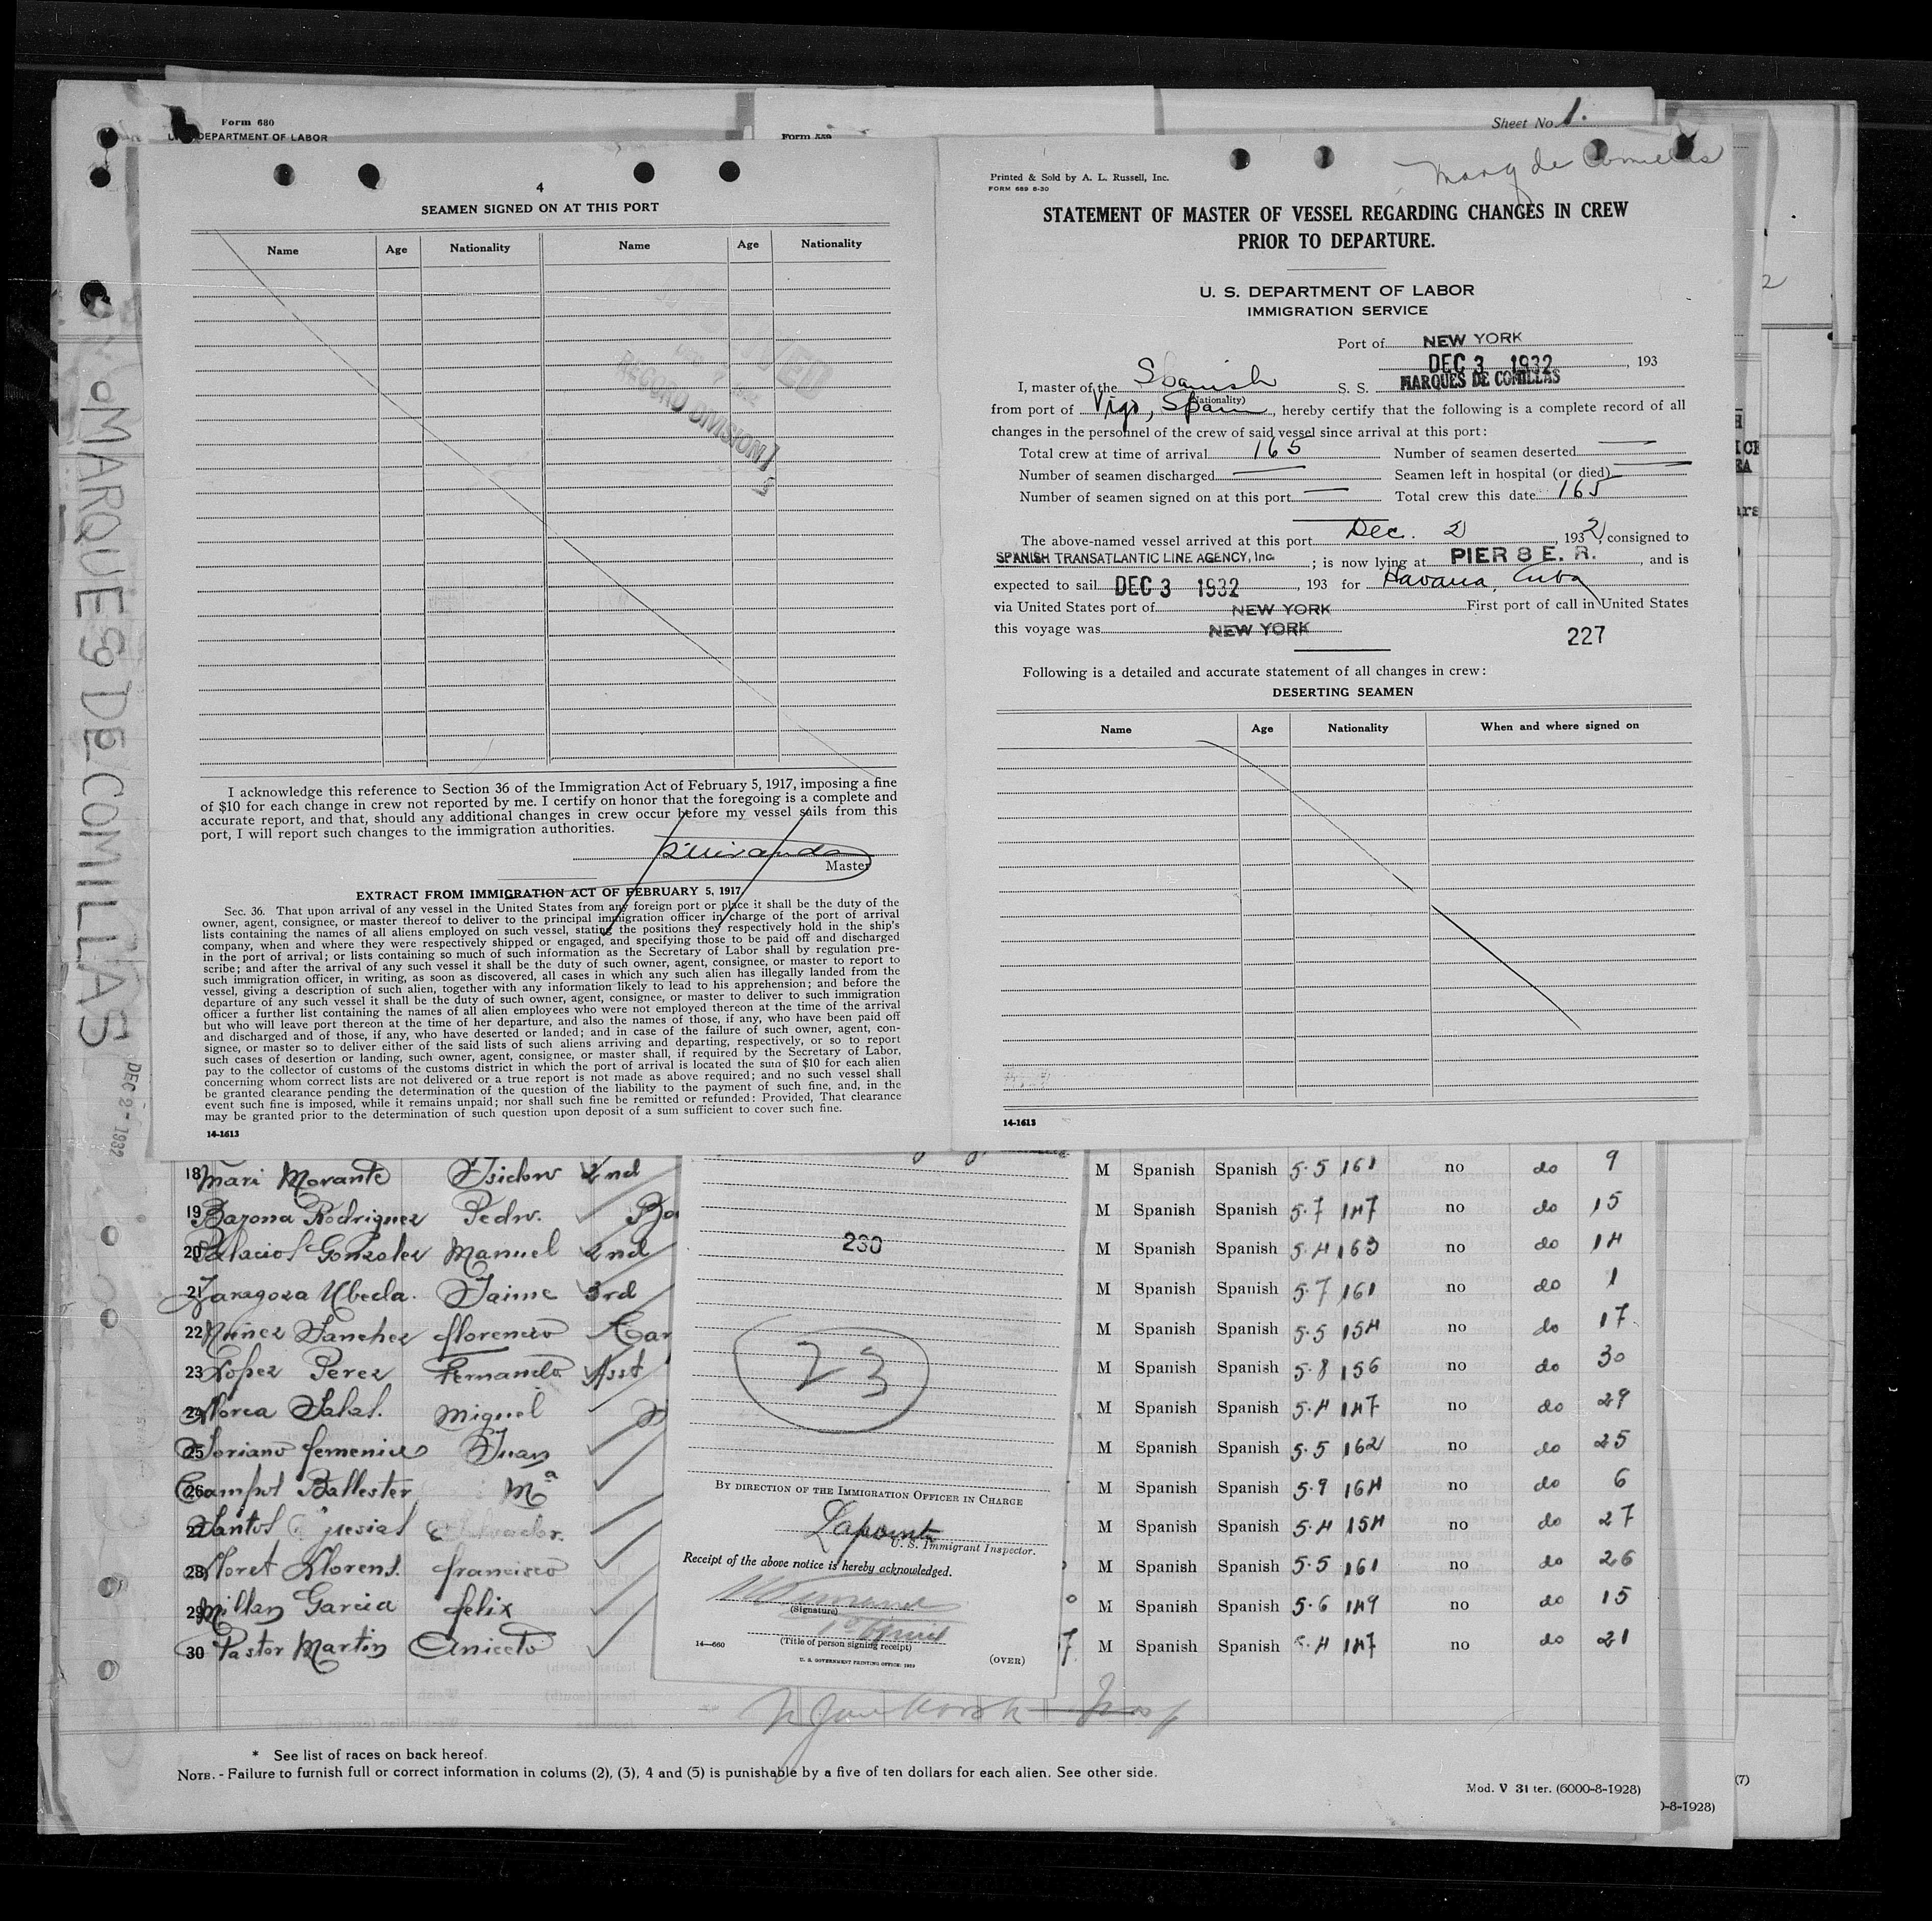 Form 680
DEPARTMENT OF LABOR
Form 559
Sheet No. 1.
MARQUES DE COMILLAS
DEC 2 - 1932
4
SEAMEN SIGNED ON AT THIS PORT
Name Age Nationality Name Age Nationality
RECEIVED
RECORD DIVISION
I acknowledge this reference to Section 36 of the Immigration Act of February 5, 1917, imposing a fine
of $10 for each change in crew not reported by me. I certify on honor that the foregoing is a complete and
accurate report, and that, should any additional changes in crew occur before my vessel sails from this
port, I will report such changes to the immigration authorities.
Master
EXTRACT FROM IMMIGRATION ACT OF FEBRUARY 5, 1917
Sec. 36. That upon arrival of any vessel in the United States from any foreign port or place it shall be the duty of the
owner, agent, consignee, or master thereof to deliver to the principal immigration officer in charge of the port of arrival
lists containing the names of all aliens employed on such vessel, stating the positions they respectively hold in the ship's
company, when and where they were respectively shipped or engaged, and specifying those to be paid off and discharged
in the port of arrival; or lists containing so much of such information as the Secretary of Labor shall by regulation pre-
scribe; and after the arrival of any such vessel it shall be the duty of such owner, agent, consignee, or master to report to
such immigration officer, in writing, as soon as discovered, all cases in which any such alien has illegally landed from the
vessel, giving a description of such alien, together with any information likely to lead to his apprehension; and before the
departure of any such vessel it shall be the duty of such owner, agent, consignee, or master to deliver to such immigration
officer a further list containing the names of all alien employees who were not employed thereon at the time of the arrival
but who will leave port thereon at the time of her departure, and also the names of those, if any, who have been paid off
and discharged and of those, if any, who have deserted or landed; and in case of the failure of such owner, agent, con-
signee, or master so to deliver either of the said lists of such aliens arriving and departing, respectively, or so to report
such cases of desertion or landing, such owner, agent, consignee, or master shall, if required by the Secretary of Labor,
pay to the collector of customs of the customs district in which the port of arrival is located the sum of $10 for each alien
concerning whom correct lists are not delivered or a true report is not made as above required; and no such vessel shall
be granted clearance pending the determination of the question of the liability to the payment of such fine, and, in the
event such fine is imposed, while it remains unpaid; nor shall such fine be remitted or refunded: Provided, That clearance
may be granted prior to the determination of such question upon deposit of a sum sufficient to cover such fine.
14-1613
Marq de Comillas
Printed & Sold by A. L. Russell, Inc.
FORM 689 8-30
STATEMENT OF MASTER OF VESSEL REGARDING CHANGES IN CREW
PRIOR TO DEPARTURE.
U. S. DEPARTMENT OF LABOR
IMMIGRATION SERVICE
Port of NEW YORK
DEC 3 1932, 193
I, master of the Spanish S. S. MARQUES DE COMILLAS
(Nationality)
from port of Vigo, Spain, hereby certify that the following is a complete record of all
changes in the personnel of the crew of said vessel since arrival at this port:
Total crew at time of arrival 165 Number of seamen deserted
Number of seamen discharged Seamen left in hospital (or died)
Number of seamen signed on at this port Total crew this date 165
The above-named vessel arrived at this port Dec. 2, 1932, consigned to
SPANISH TRANSATLANTIC LINE AGENCY, Inc. ; is now lying at PIER 8 E. R., and is
expected to sail DEC 3 1932, 193 for Havana, Cuba
via United States port of NEW YORK First port of call in United States
this voyage was NEW YORK
227
Following is a detailed and accurate statement of all changes in crew:
DESERTING SEAMEN
Name Age Nationality When and where signed on
14-1613
18 Mari Morante Isidoro 2nd M Spanish Spanish 5.5 161 no do 9
19 Bazona Rodriguez Pedro. M Spanish Spanish 5.7 147 no do 15
20 Palacios Gonzalez Manuel 2nd M Spanish Spanish 5.4 163 no do 14
21 Zaragoza Ubeda. Jaime 3rd M Spanish Spanish 5.7 161 no do 1
22 Nuñez Sanchez Florencio Car M Spanish Spanish 5.5 154 no do 17
23 Lopez Perez Fernando Asst M Spanish Spanish 5.8 156 no do 30
24 Llorca Salas. Miguel M Spanish Spanish 5.4 147 no do 29
25 Soriano Femenia Juan M Spanish Spanish 5.5 162 no do 25
26 Campos Ballester Mª M Spanish Spanish 5.9 164 no do 6
27 Santos Iglesias Salvador. M Spanish Spanish 5.4 154 no do 27
28 Lloret Llorens. Francisco M Spanish Spanish 5.5 161 no do 26
29 Millan Garcia Felix M Spanish Spanish 5.6 149 no do 15
30 Pastor Martin Aniceto M Spanish Spanish 5.4 147 no do 21
230
23
BY DIRECTION OF THE IMMIGRATION OFFICER IN CHARGE
U. S. Immigrant Inspector.
Receipt of the above notice is hereby acknowledged.
(Signature)
(Title of person signing receipt)
14—660
U. S. GOVERNMENT PRINTING OFFICE: 1929
(OVER)
* See list of races on back hereof.
NOTE. - Failure to furnish full or correct information in colums (2), (3), 4 and (5) is punishable by a five of ten dollars for each alien. See other side.
Mod. V 31 ter. (6000-8-1928)
(7)
0-8-1928)